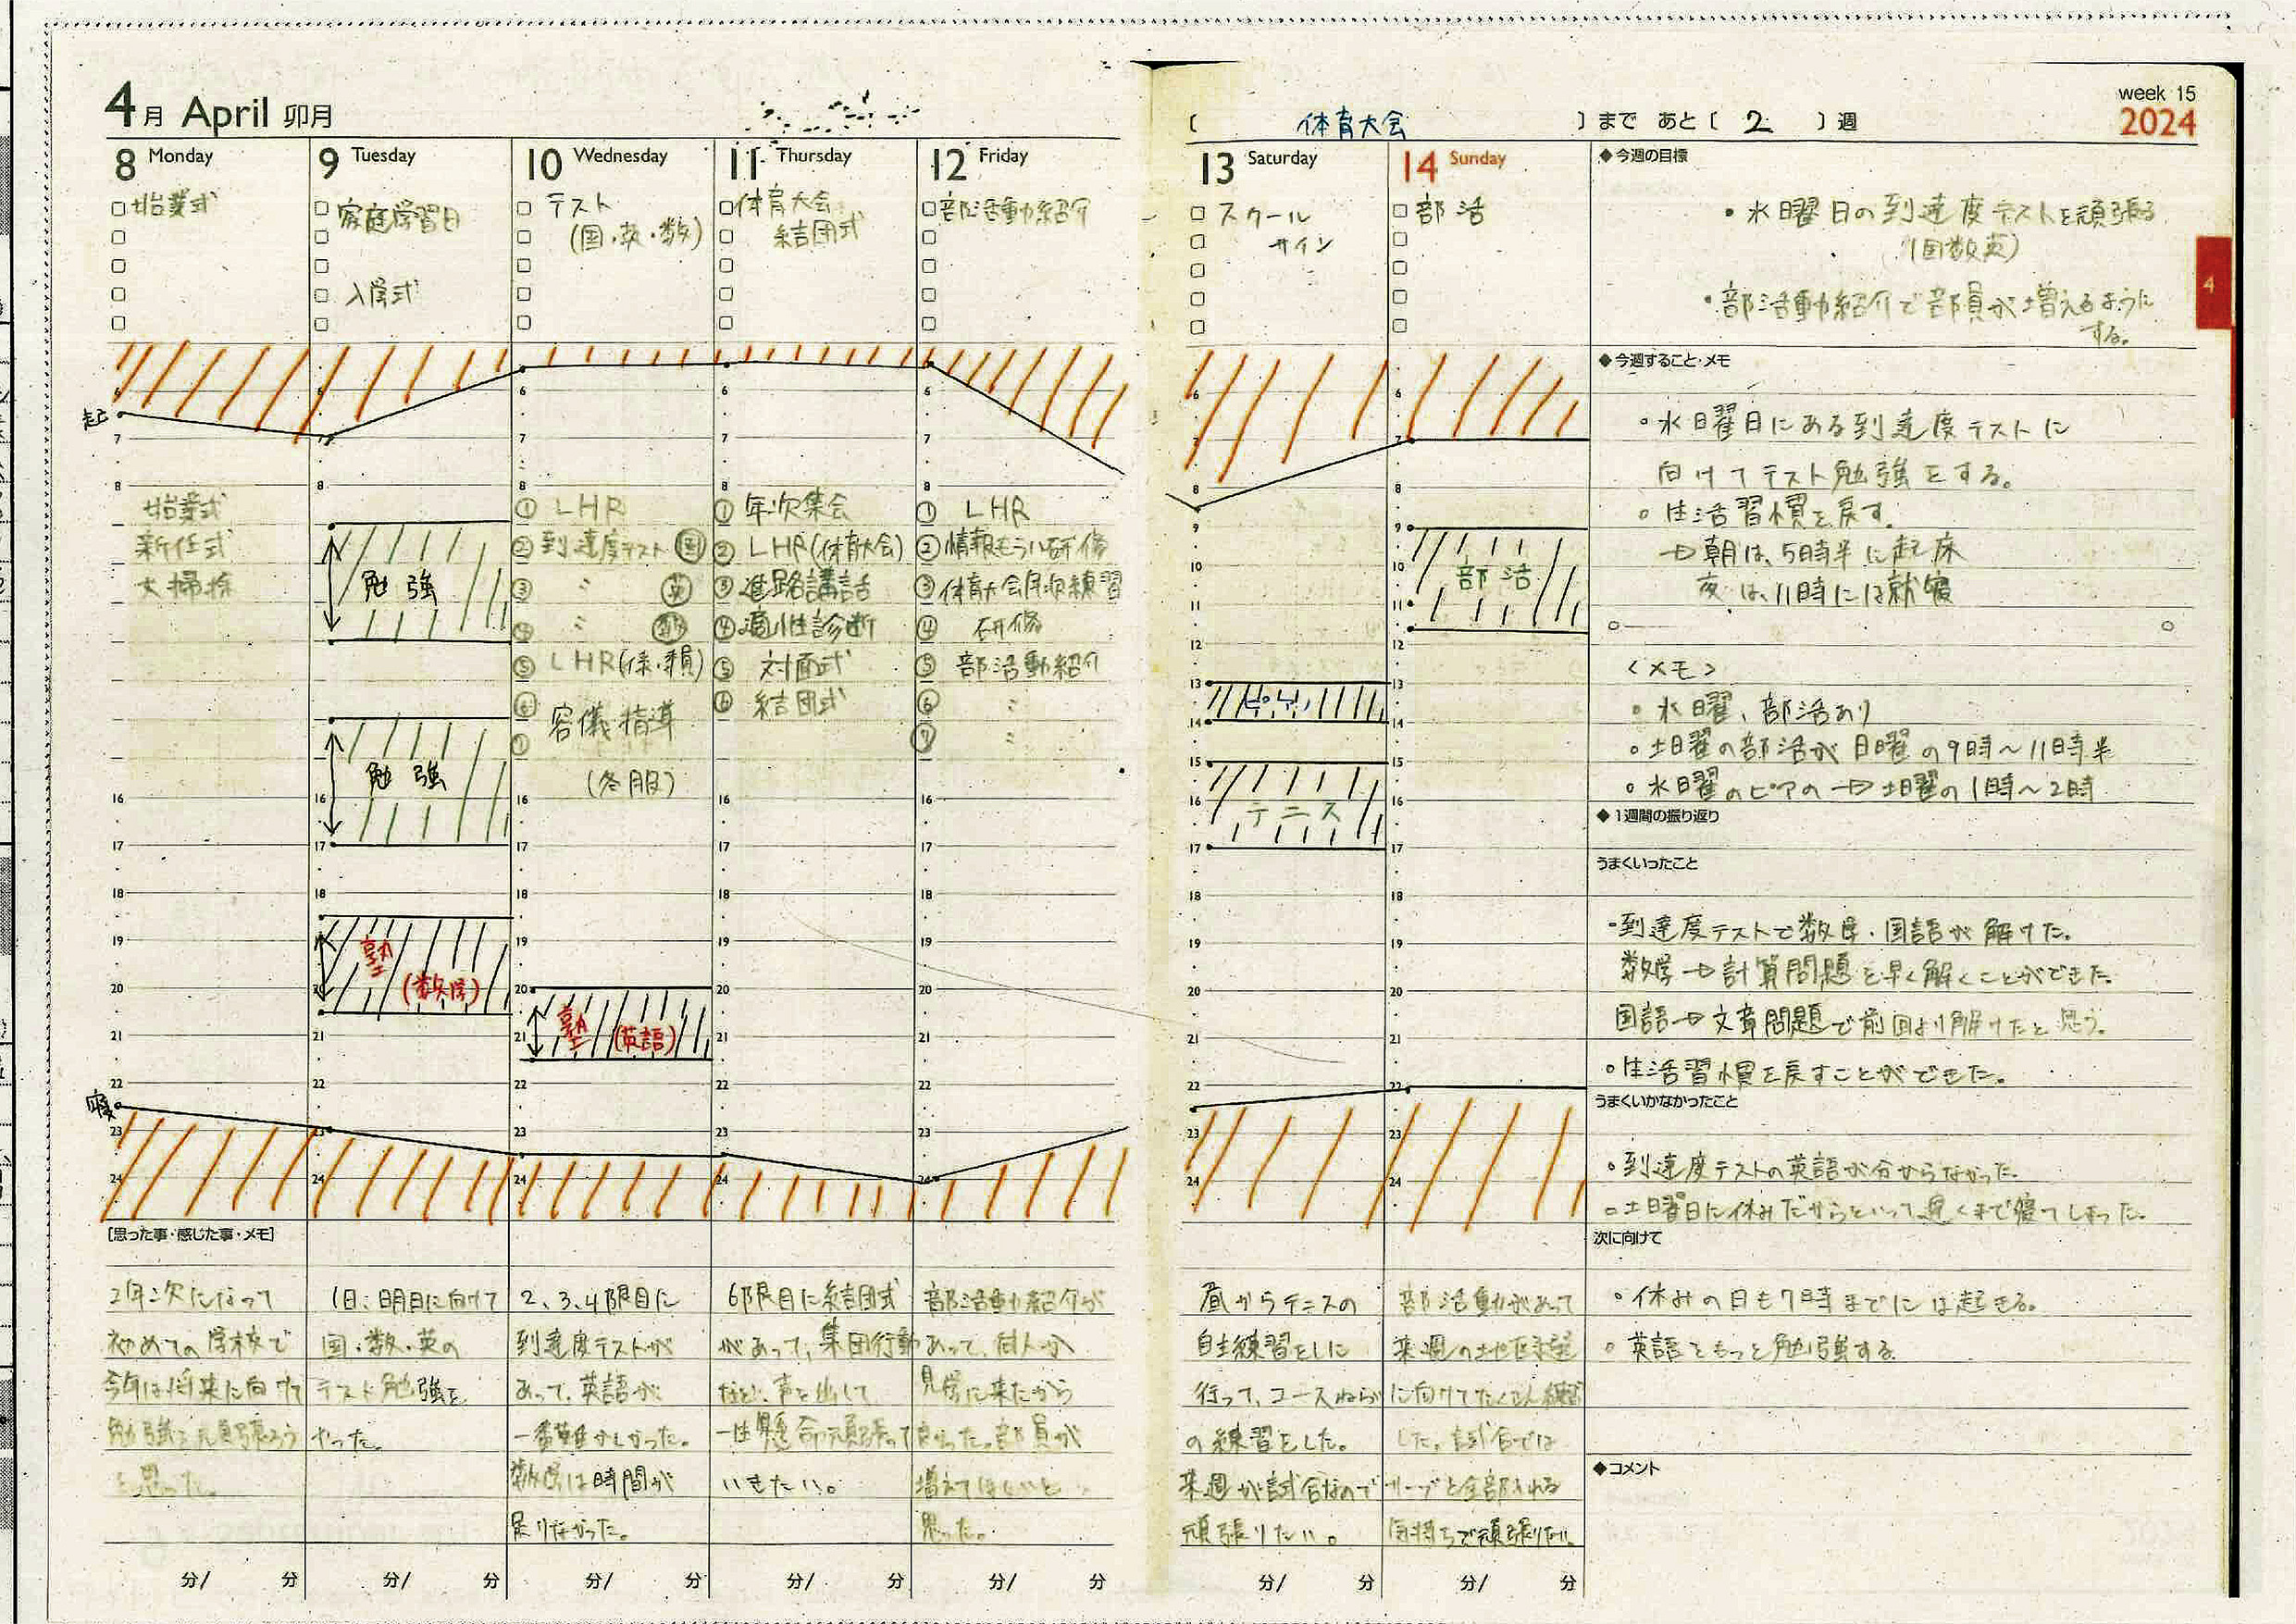 4月 April 卯月
8 Monday
始業式
9 Tuesday
家庭学習日
入学式
10 Wednesday
テスト
(国・英・数)
11 Thursday
体育大会
結団式
12 Friday
部活動紹介
起
6
7
8
始業式
新任式
大掃除
22
寝
23
24
6
7
8
勉強
勉強
17
18
塾
(数学)
19
20
21
22
23
6
7
8
① LHR
② 到達度テスト 国
③ 〃 英
④ 〃 数
⑤ LHR(係・委員)
⑥ 容儀指導
⑦
(冬服)
16
17
18
19
20
塾 (英語)
21
22
23
24
6
7
8
① 年次集会
② LHR(体育大会)
③ 進路講話
④ 適性診断
⑤ 対面式
⑥ 結団式
16
17
18
19
20
21
22
23
24
6
7
8
① LHR
② 情報モラル研修
③ 体育大会年次練習
④ 研修
⑤ 部活動紹介
⑥ 〃
⑦ 〃
16
17
18
19
20
21
22
23
24
[思った事・感じた事・メモ]
2年次になって
初めての学校で
今年は将来に向けて
勉強を頑張ろう
と思った。
1日、明日に向けて
国・数・英の
テスト勉強を
やった。
2、3、4限目に
到達度テストが
あって、英語が
一番難かしかった。
数学は時間が
足りなかった。
6限目に結団式
があって、集団行動
など、声を出して
一生懸命頑張って
いきたい。
部活動紹介が
あって、何人か
見学に来たから
良かった。部員が
増えてほしいと
思った。
分/ 分
分/ 分
分/ 分
分/ 分
分/ 分
〔 体育大会 〕まで あと〔 2 〕週
week 15
2024
13 Saturday
スクール
サイン
14 Sunday
部活
6
7
8
9
10
11
12
13
14
15
16
テニス
17
18
19
20
21
22
23
24
6
7
8
9
10
部活
11
12
13
14
15
16
17
18
19
20
21
22
23
24
昼からテニスの
自主練習をしに
行って、コースねらい
の練習をした。
来週が試合なので
頑張りたい。
部活動があって
来週の地区予選
に向けてたくさん練習
した。試合では
サーブを全部入れる
気持ちで頑張りたい。
分/ 分
分/ 分
◆今週の目標
・水曜日の到達度テストを頑張る
(国数英)
・部活動紹介で部員が増えるように
する。
4
◆今週すること・メモ
・水曜日にある到達度テストに
向けてテスト勉強をする。
・生活習慣を戻す。
→朝は、5時半に起床
夜は、11時には就寝
<メモ>
・水曜、部活あり
・土曜の部活が日曜の9時～11時半
・水曜のピアの→土曜の1時～2時
◆1週間の振り返り
うまくいったこと
・到達度テストで数学・国語が解けた。
数学→計算問題を早く解くことができた。
国語→文章問題で前回より解けたと思う。
・生活習慣を戻すことができた。
うまくいかなかったこと
・到達度テストの英語が分からなかった。
・土曜日に休みだからといって遅くまで寝てしまった。
次に向けて
・休みの日も7時までには起きる。
・英語をもっと勉強する
◆コメント